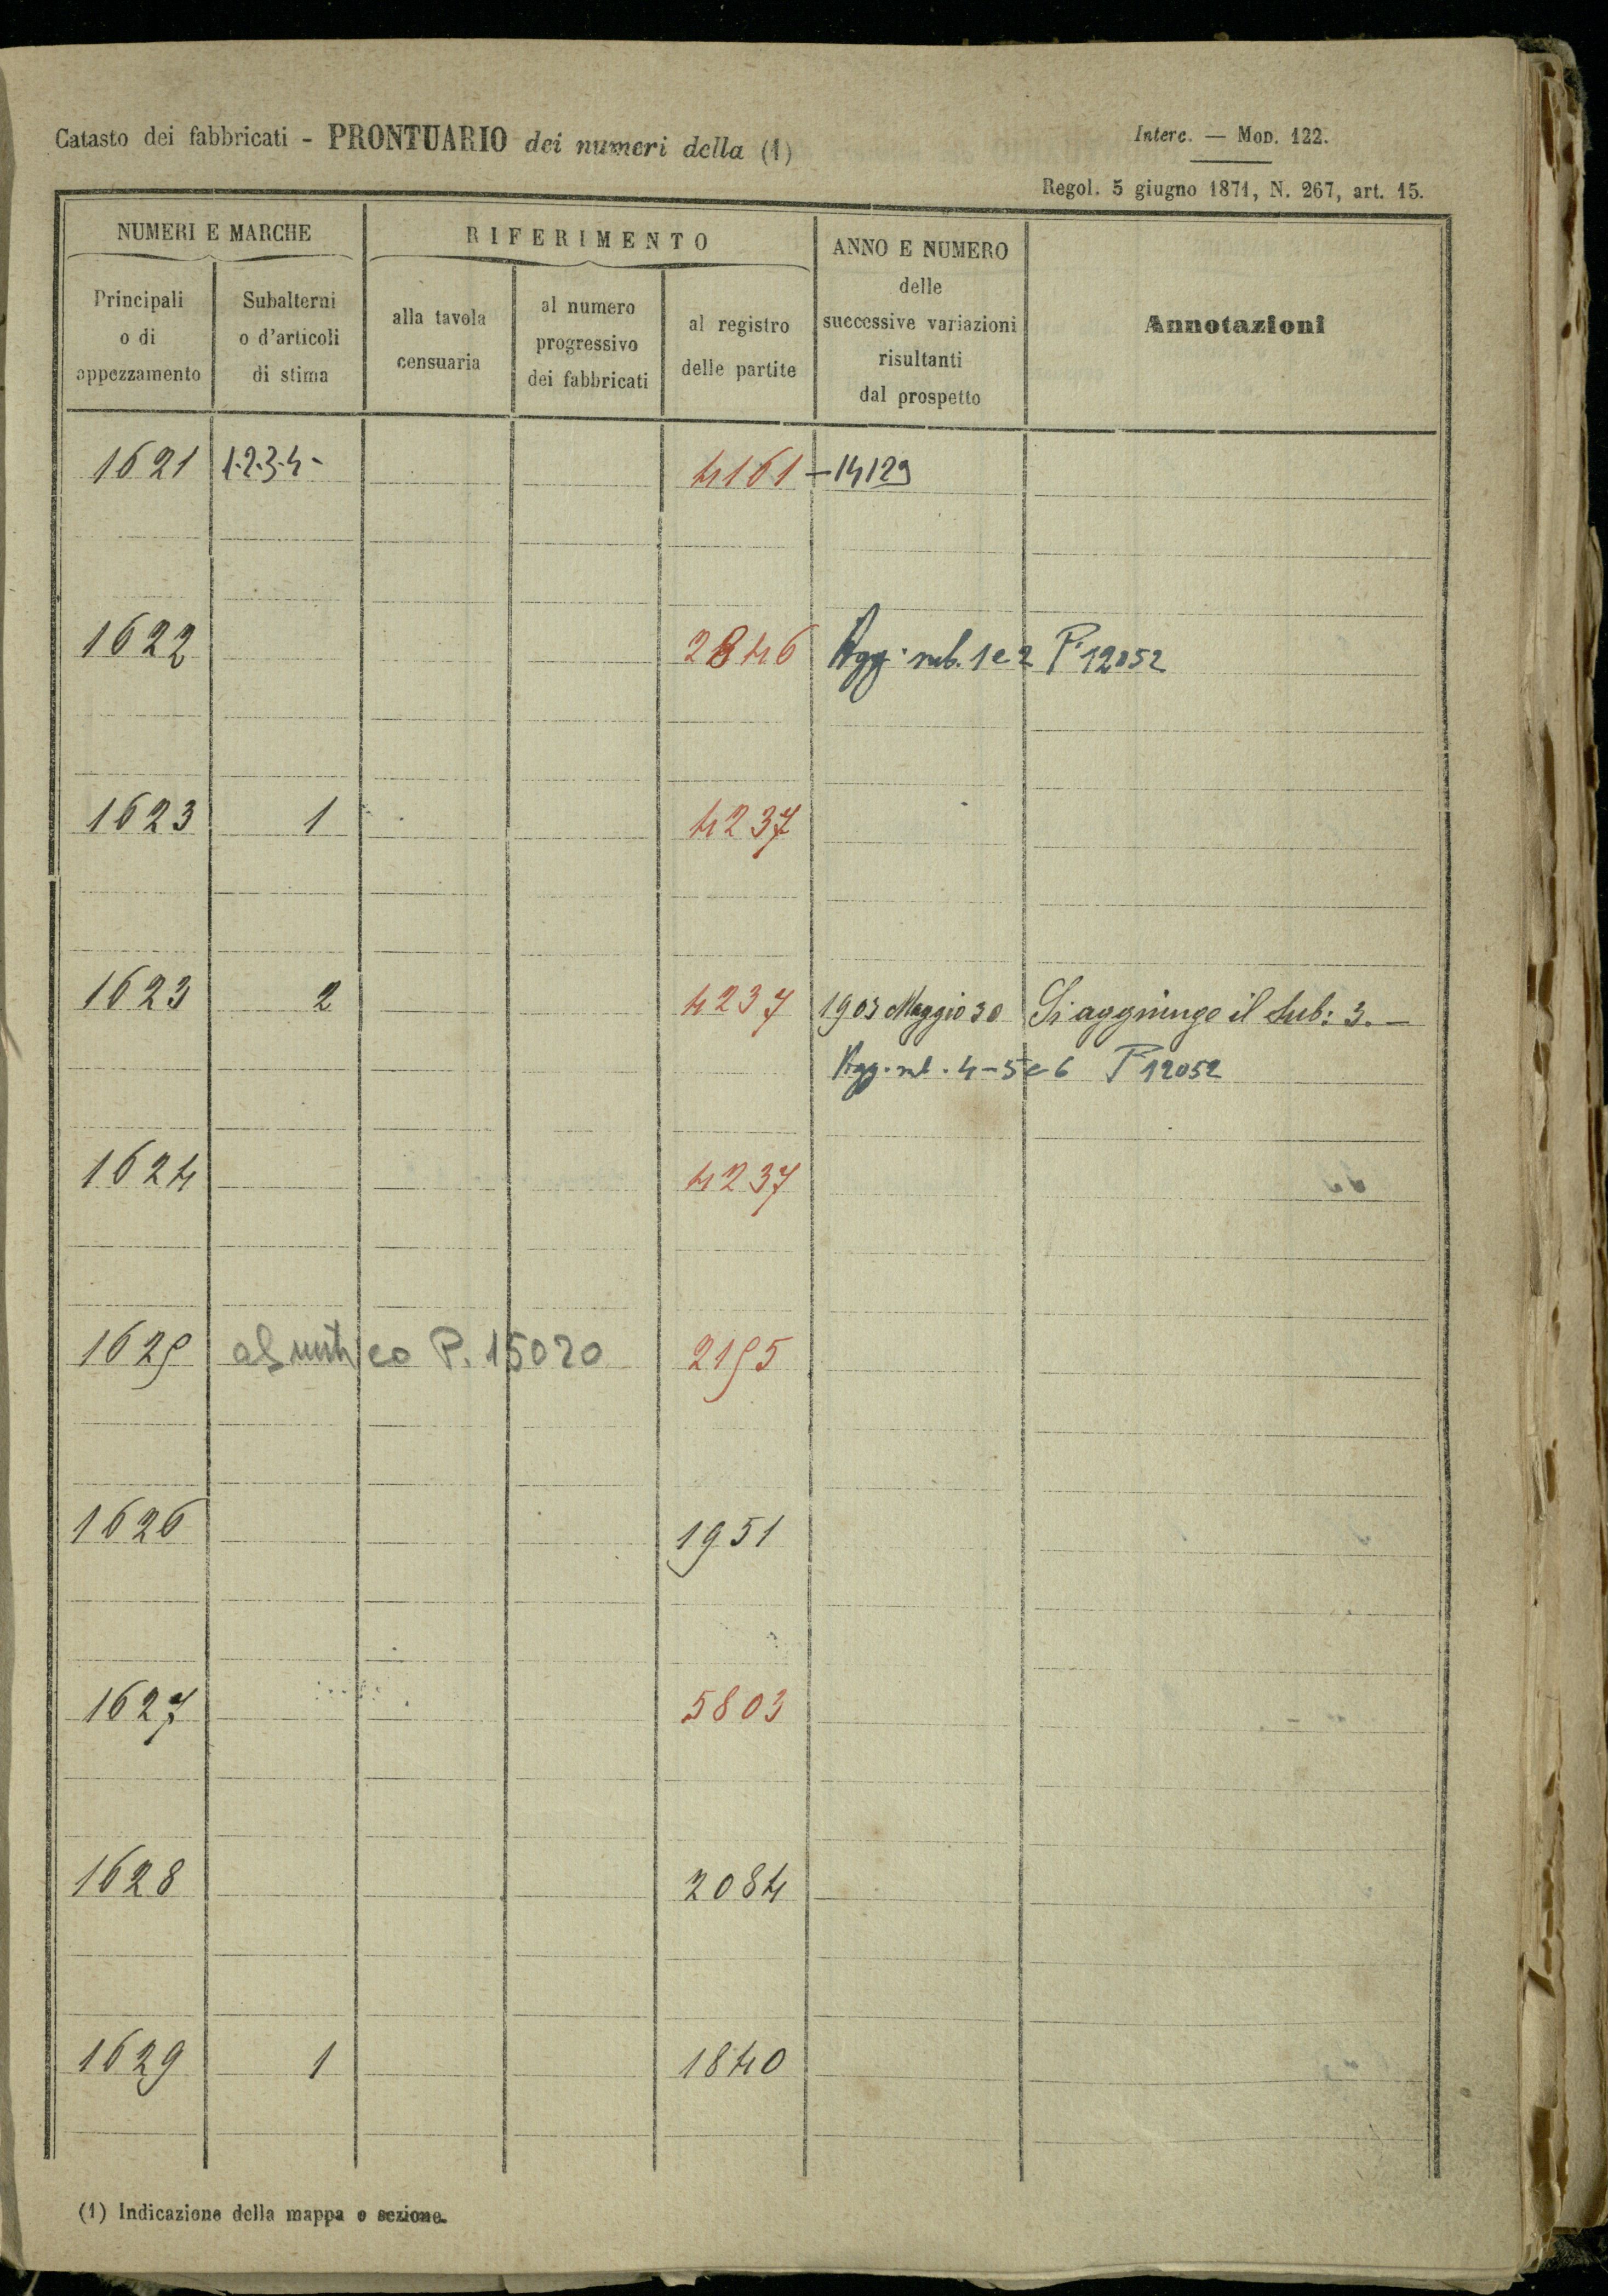 Catasto dei fabbricati - PRONTUARIO dei numeri della (1)
Interc. — MOD. 122.
Regol. 5 giugno 1871, N. 267, art. 15.
NUMERI E MARCHE
RIFERIMENTO
ANNO E NUMERO
delle
successive variazioni
risultanti
dal prospetto
Annotazioni
Principali
o di
appezzamento
Subalterni
o d'articoli
di stima
alla tavola
censuaria
al numero
progressivo
dei fabbricati
al registro
delle partite
1621 1.2.3.4- 4161 - 14129
1622 2846 Agg. sub. 1 e 2 P 12052
1623 1 4237
1623 2 4237 1903 Maggio 30 Si aggiunge il Sub: 3. —
Agg. sub. 4-5 e 6 P 12052
1624 4237
1625 P. 15020 2195
1626 1951
1627 5803
1628 2084
1629 1 1840
(1) Indicazione della mappa o sezione.